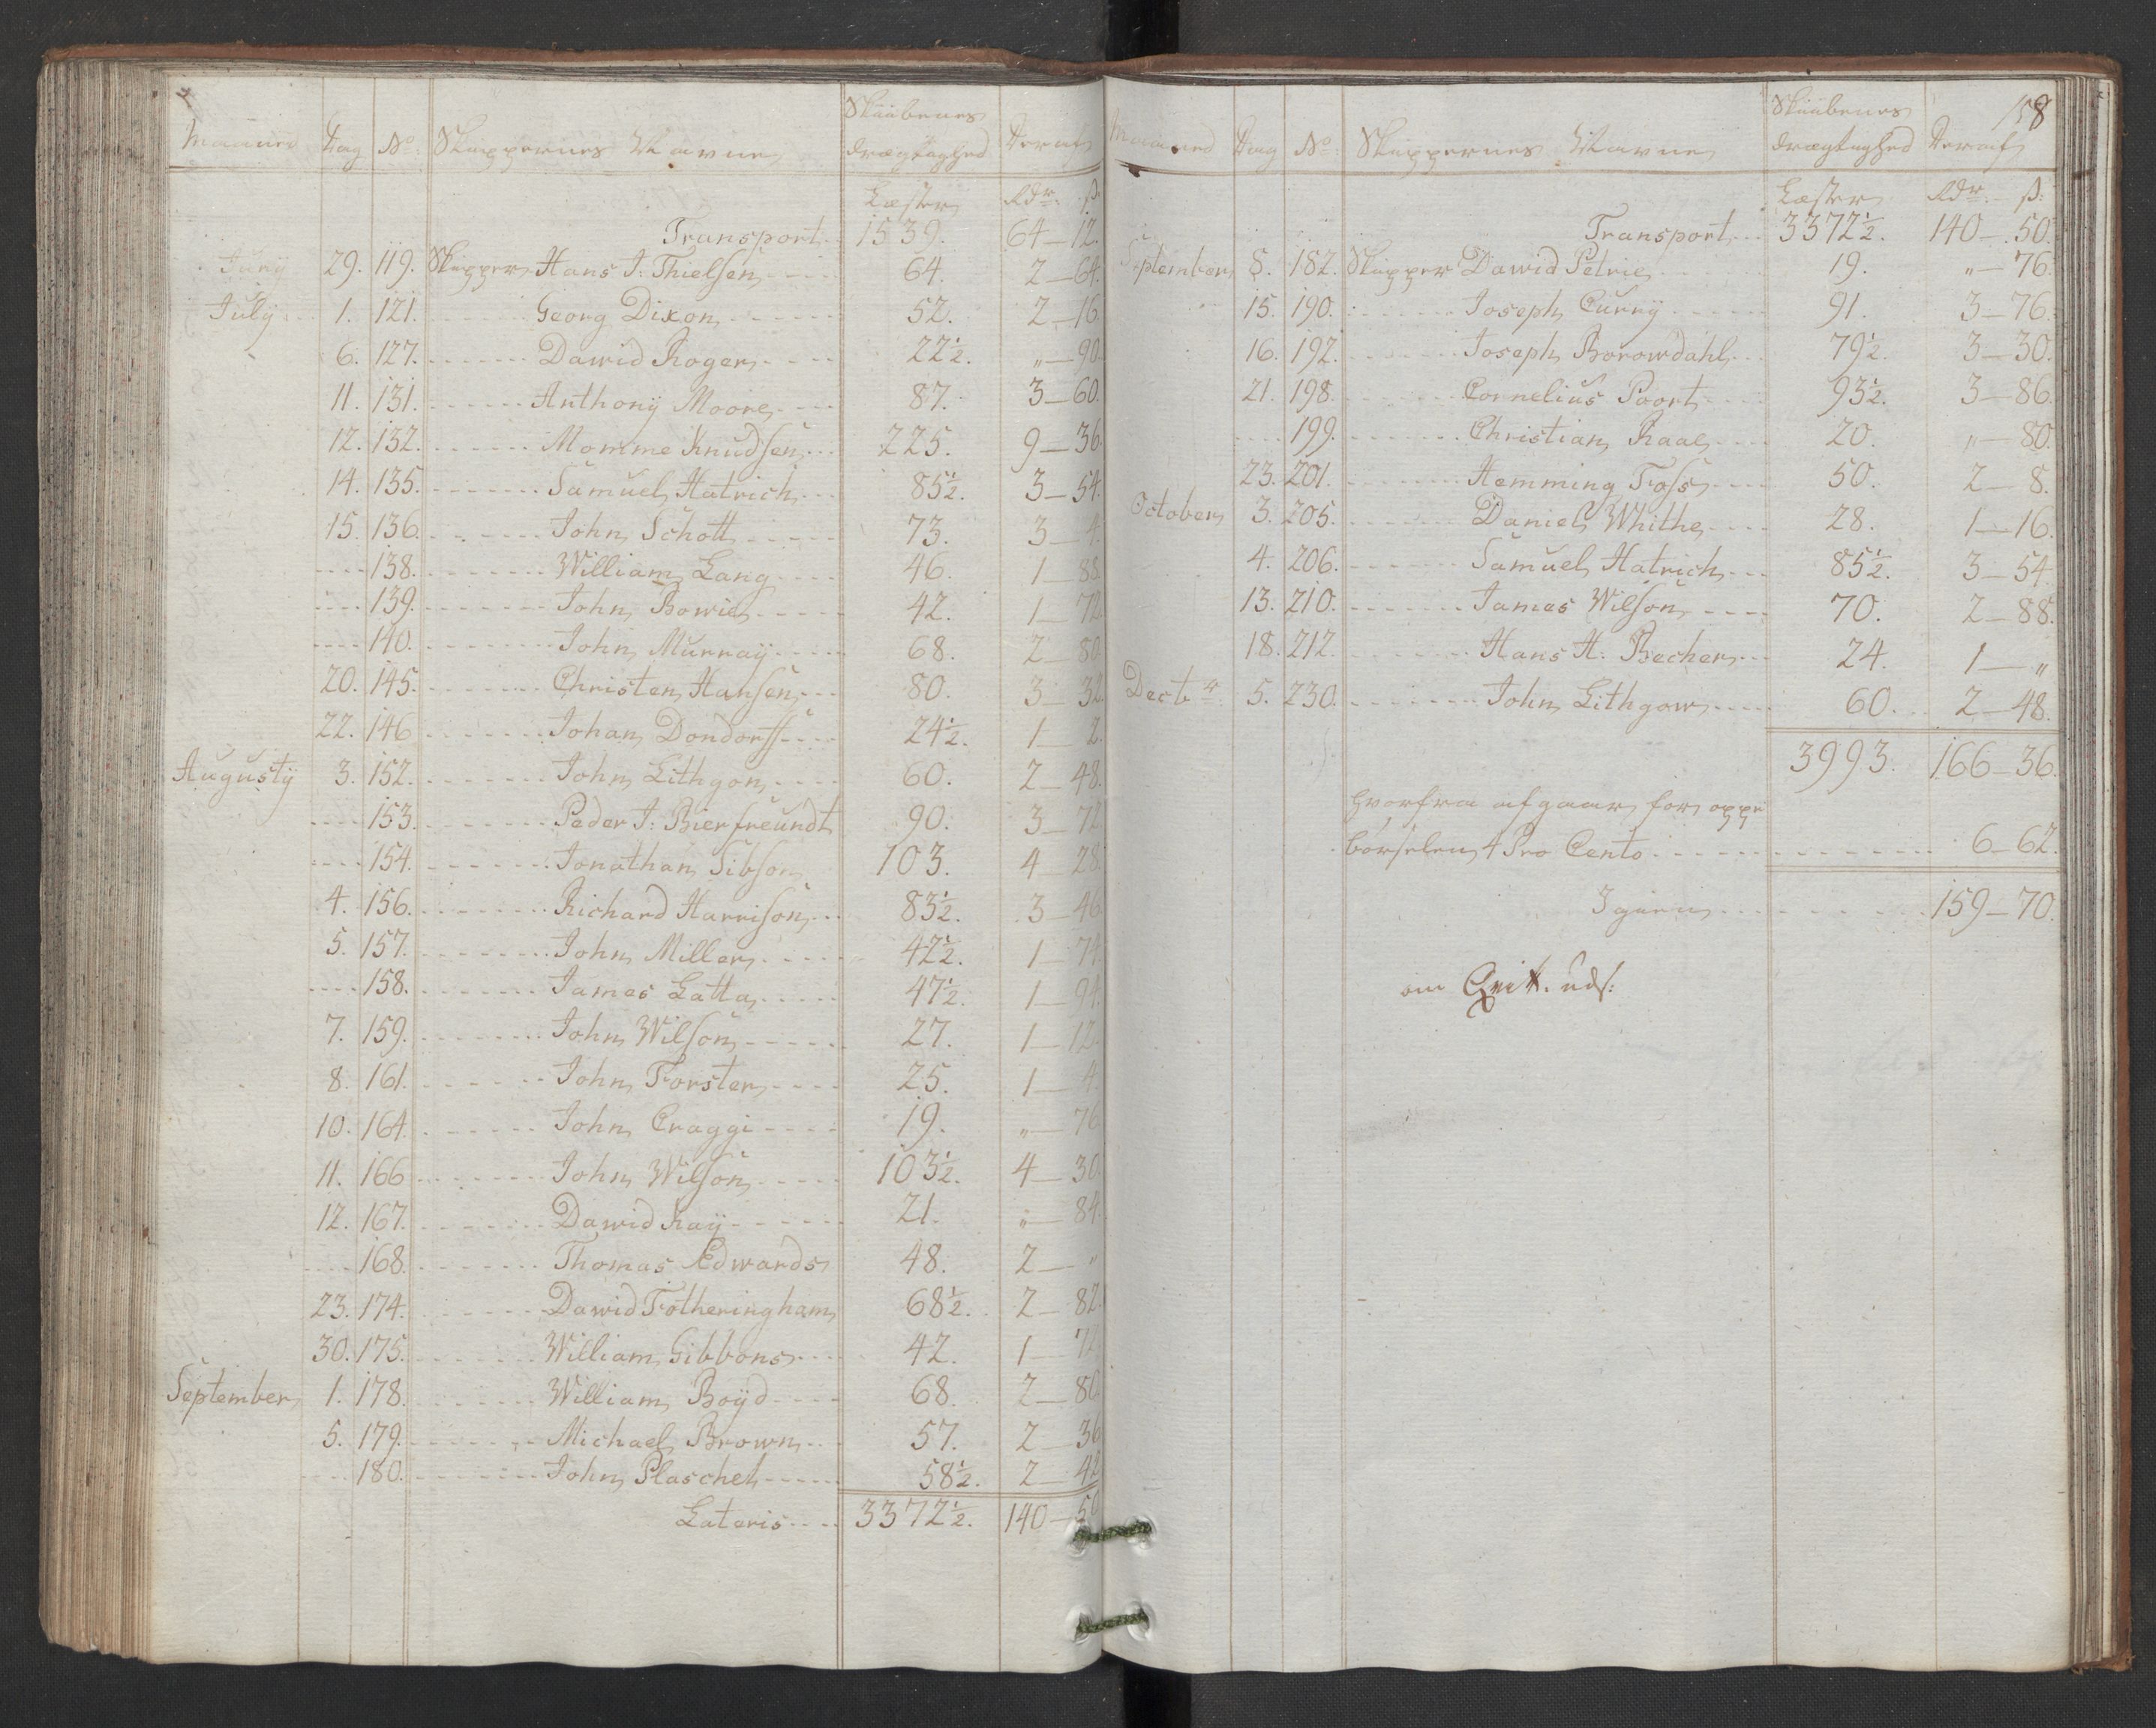 Maaned Dag No: Skippernes Navne Skibenes Drægtighed Deraf
Læster Rdr. ß.
Transport 1539. 64—12.
Juny 29. 119. Skipper Hans J: Thielsen 64. 2—64.
July 1. 121. Georg Dixon 52. 2—16
6. 127. Dawid Roger 22½. „—90.
11. 131. Anthony Moore 87. 3—60.
12. 132. Momme Knudsen 225. 9—36.
14. 135. Samuel Hatrich 85½. 3—54.
15. 136. John Schott 73. 3—4.
138. William Lang 46. 1—88.
139. John Bowie 42. 1—72.
140. John Murray 68. 2—80.
20. 145. Christen Hansen 80. 3—32.
22. 146 Johan Dondorff 24½. 1—2.
Augusty 3. 152. John Lithgon 60. 2—48.
153. Peder J: Bierfreundt 90. 3—72.
154. Jonathan Sibson 103. 4—28.
4. 156. Richard Harrison 83½. 3—46.
5. 157. John Miller 42½. 1—74
158. James Latta 47½. 1—94.
7. 159. John Wilson 27. 1—12.
8. 161. John Forster 25. 1—4
10. 164. John Craggi 19. „—76
11. 166 John Wilson 103½. 4—30
12. 167. Dawid Kay 21. „—84.
168. Thomas Edwards 48. 2—„
23. 174. Dawid Fotheringham 68½. 2—82.
30. 175. William Gibbons 42. 1—72
September 1. 178. William Boyd 68. 2—80
5. 179. Michael Brown 57. 2—36
180. John Plaschel 58½. 2—42
Lateris 3372½. 140—50
158
Maaned Dag No: Skippernes Navne Skibenes Drægtighed Deraf
Læster Rdr. ß:
Transport 3372½. 140—50.
September 8. 182. Skipper Dawid Petrie 19. „—76.
15. 190. Joseph Curry 91. 3—76.
16. 192. Joseph Borowdahl 79½. 3—30.
21. 198. Cornelius Poort 93½. 3—86
199. Christian Raae 20. „—80.
23. 201. Hemming Foss 50. 2—8.
October 3. 205. Daniel Whithe 28. 1—16.
4. 206. Samuel Hatrich 85½. 3—54.
13. 210. James Wilson 70. 2—88.
18. 212. Hans H: Becher 24. 1—„
Dectbr. 5. 230. John Lithgow 60. 2—48.
3993. 166—36.
hvorfra afgaar for oppe
børselen 4 Pro Cento 6—62.
Igien 159—70.
om Qvit. uds: